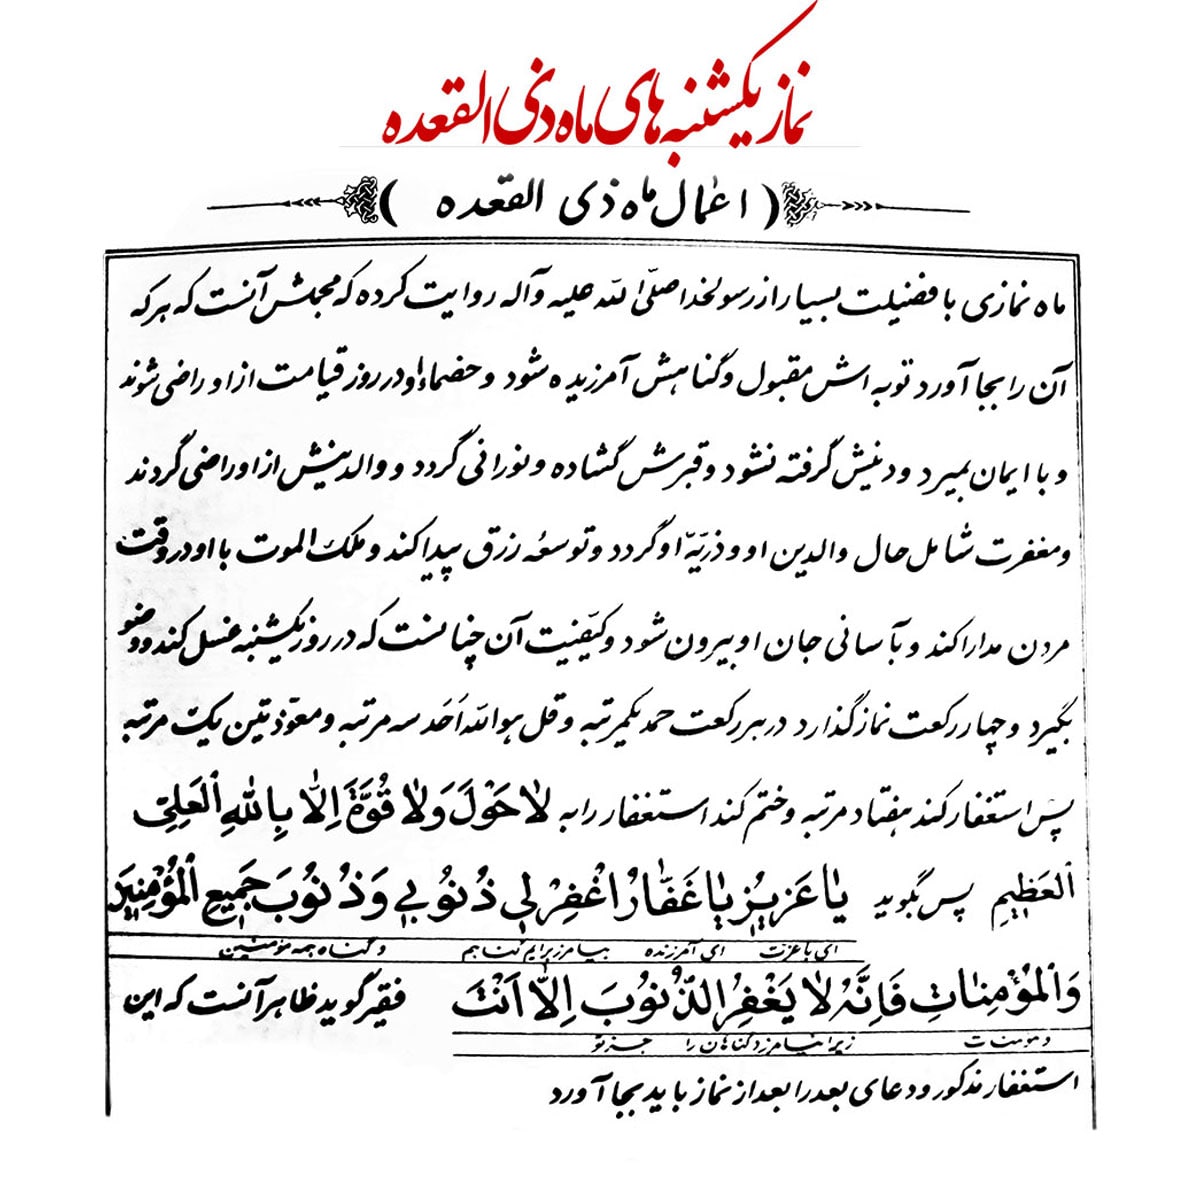 نماز یکشنبه های ماه ذی القعده
( اعمال ماه ذی القعده )
ماه نمازی با فضیلت بسیار از رسولخدا صلّی الله علیه و آله روایت کرده که مجملش آنست که هر که
آن را بجا آورد توبه اش مقبول و گناهش آمرزیده شود و خصماء او در روز قیامت از او راضی شوند
و با ایمان بمیرد و دینش گرفته نشود و قبرش گشاده و نورانی گردد و والدینش از او راضی گردند
و مغفرت شامل حال والدین او و ذریّه او گردد و توسعه رزق پیدا کند و ملک الموت با او در وقت
مردن مدارا کند و بآسانی جان او بیرون شود و کیفیّت آن چنانست که در روز یکشنبه غسل کند و وضو
بگیرد و چهار رکعت نماز گذارد در هر رکعت حمد یکمرتبه و قل هو الله اَحَد سه مرتبه و معوّذتین یک مرتبه
پس استغفار کند هفتاد مرتبه و ختم کند استغفار را به لاٰ حَوْلَ وَلاٰ قُوَّةَ اِلاّٰ بِاللّٰهِ الْعَلِیِّ
الْعَظِیمِ پس بگوید یٰا عَزِیزُ یٰا غَفّٰارُ اغْفِرْ لِی ذُنُوبِی وَ ذُنُوبَ جَمِیعِ الْمُؤْمِنِینَ
ای با عزت ای آمرزنده بیامرز برایم گناهم و گناه همه مؤمنین
وَالْمُؤْمِنٰاتِ فَاِنَّهُ لاٰ یَغْفِرُ الذُّنُوبَ اِلاّٰ اَنْتَ فقیر گوید ظاهر آنست که این
و مؤمنات زیرا نیامرزد گناهان را جز تو
استغفار مذکور و دعای بعد را بعد از نماز باید بجا آورد